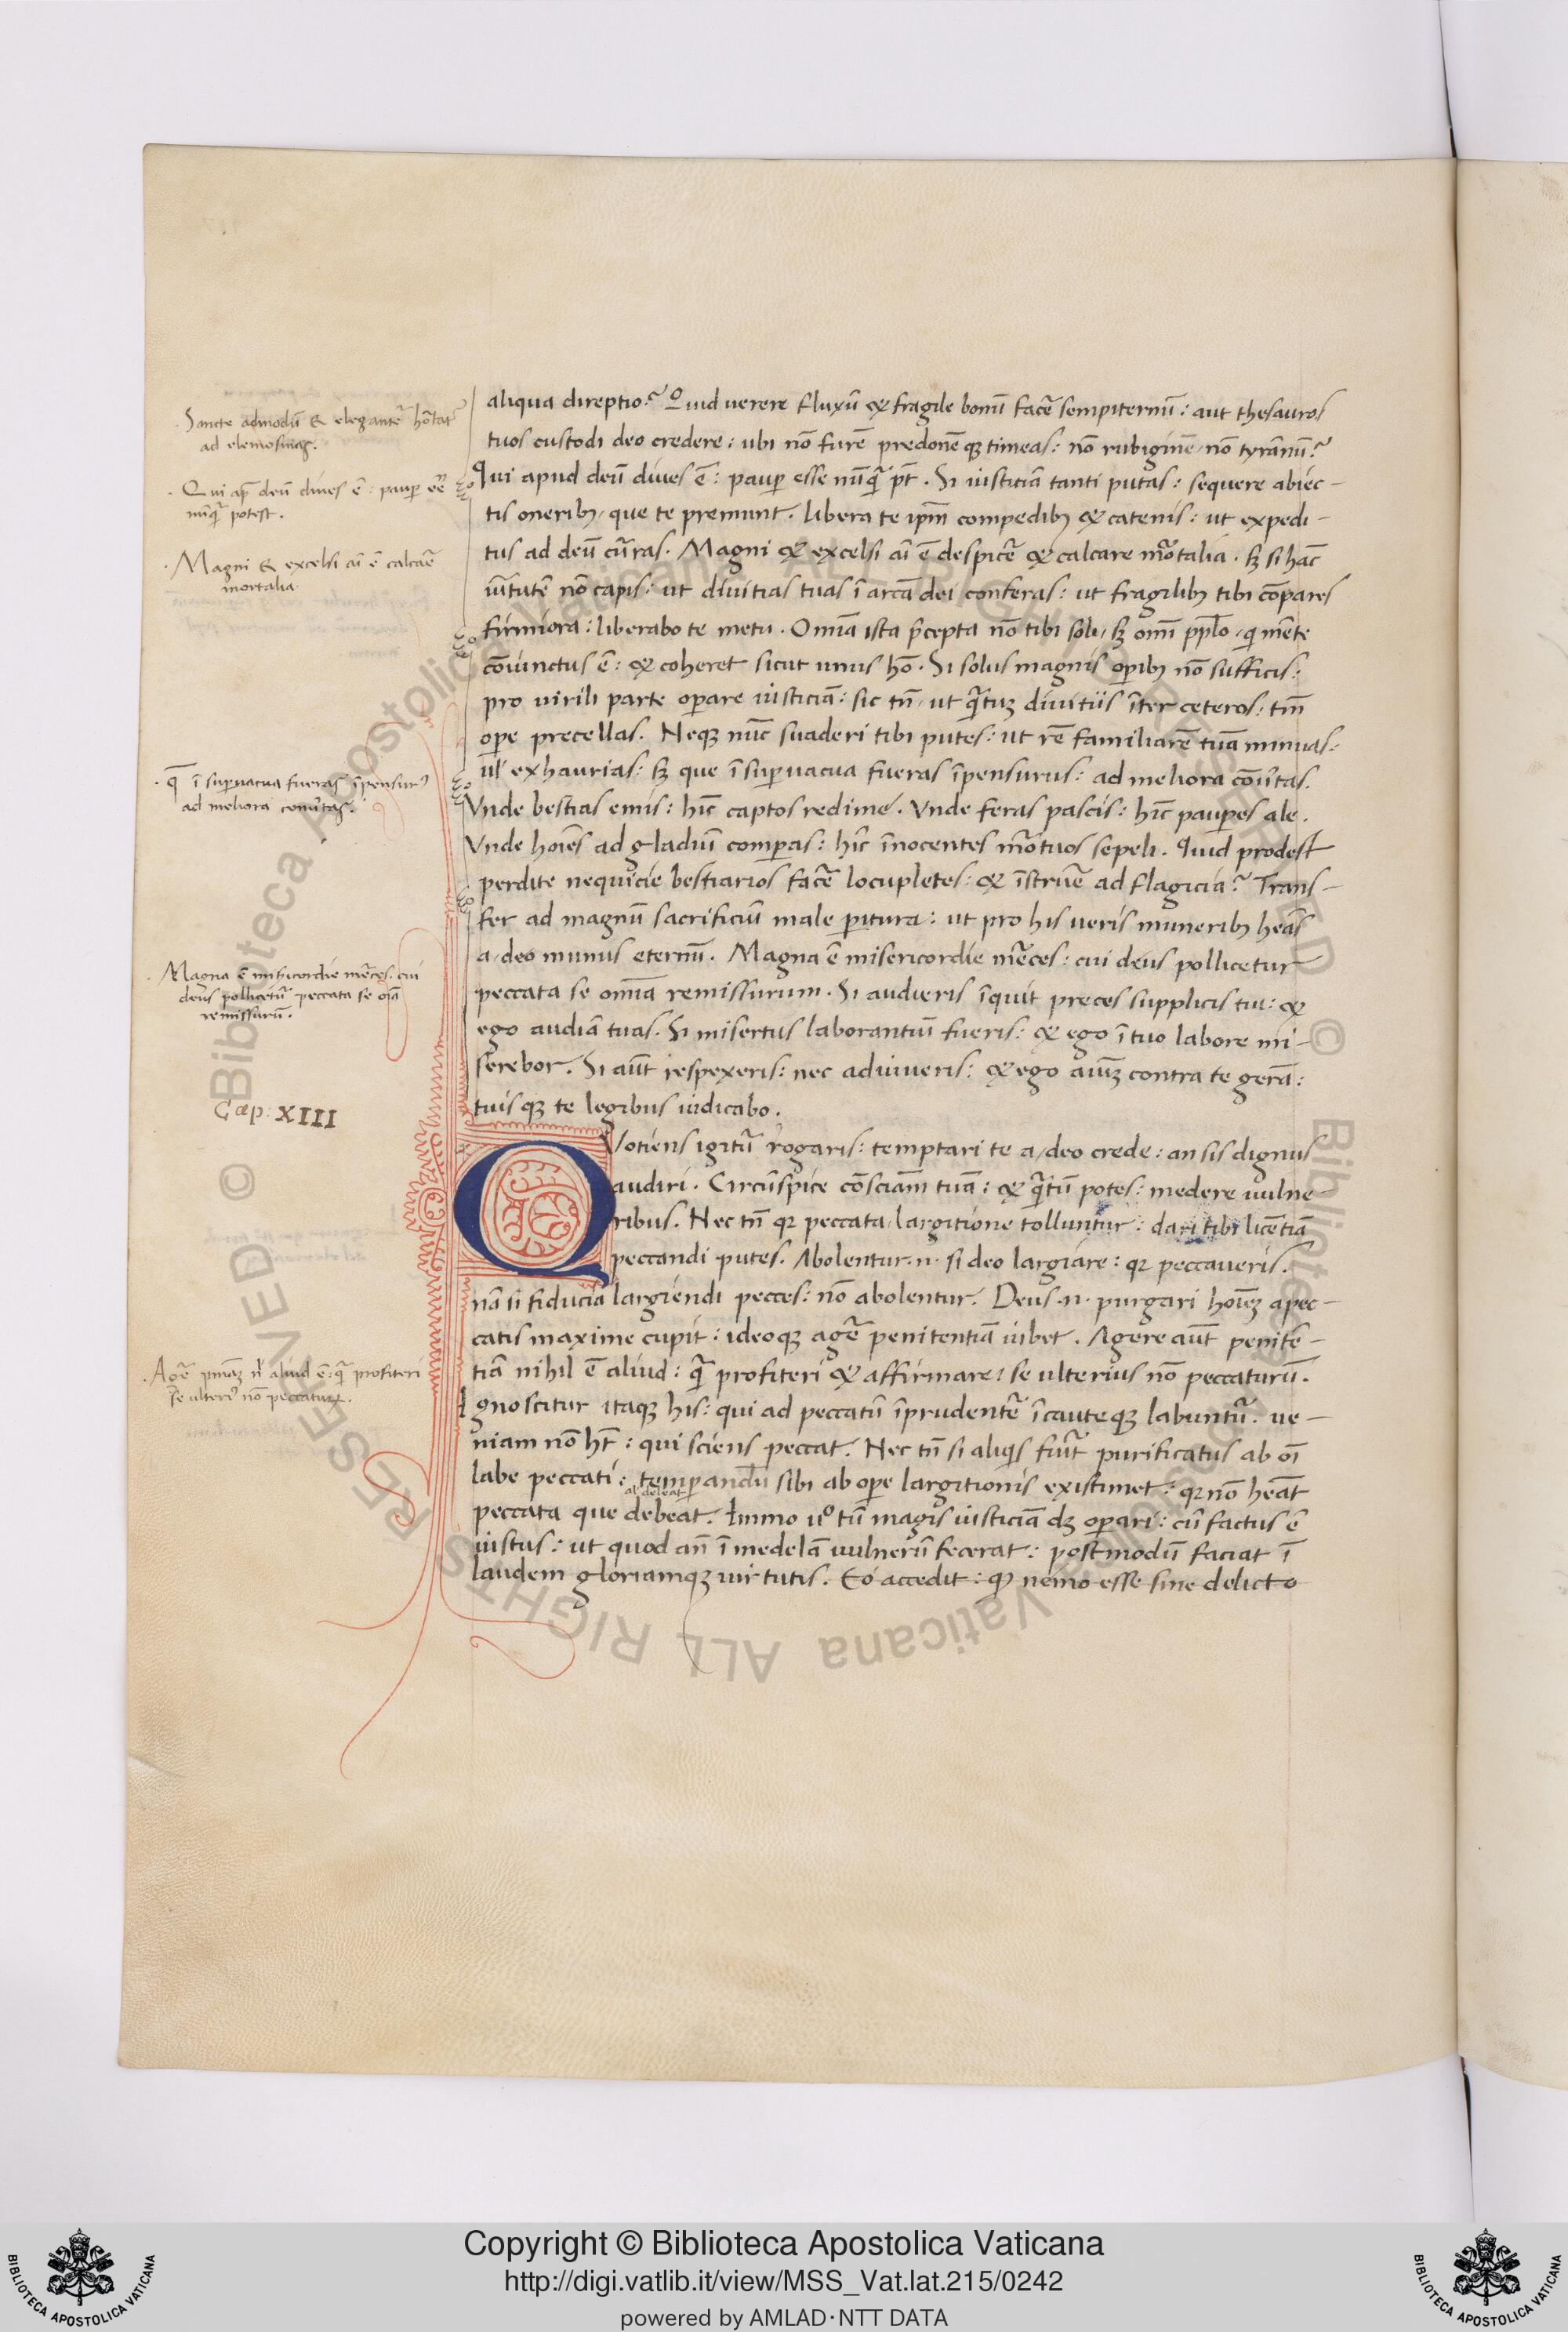 Sancte admodū & elegantē hortat̄
ad elemosinas.
Qui ap̄ deū dives ē: paup eē
nūq̄ potest.
Magni & excelsi aī ē calcaē
mortalia
q̄ ī supuacua fueras īpensur⁹
ad meliora conūtas.
Magna ē misicordie mēces. cui
deus pollicetur peccata se oīa
remissurū.
Cap: XIII
Agē pniaꝫ nl aliud ē: q̄ profiteri
se ulteri⁹ nō peccatuꝝ.
aliqua direptio? Quid uerere fluxū & fragile bonū facē sempiternū: aut thesauros
tuos custodi deo credere: ubi nō furē predonēqꝫ timeas: nō rubiginē, nō tyrānū?
Qui apud deū diues ē: paup esse nūq̄ pt̄. Si iusticiā tanti putas: sequere abiec-
tis oneribꝫ, que te premunt. libera te ipm̄ compedibꝫ & catenis: ut expedi-
tus ad deū cūras. Magni & excelsi aī ē despicē & calcare mortalia. sꝫ si hāc
uītutē nō capis: ut diuitias tuas ī arcā dei conferas: ut fragilibꝫ tibi cōpares
firmiora: liberabo te metu. Omīa ista p̄cepta nō tibi soli, sꝫ omī pplo, q mēte
cōiunctus ē: & coheret sicut unus hō. Si solus magnis opibꝫ nō sufficis:
pro uirili parte operare iusticiā: sic tn̄, ut q̄tuꝫ diuitiis īter ceteros: tm̄
ope precellas. Neqꝫ nūc suaderi tibi putes: ut rē familiarē tuā minuas:
ul̄ exhaurias: sꝫ que ī supuacua fueras īpensurus: ad meliora cōūtas.
Vnde bestias emis: hīc captos redime. Vnde feras pascis: hīc paupes ale.
Vnde hoīes ad gladiū comparas: hīc īnocentes mortuos sepeli. Quid prodest
perdite nequicie bestiarios facē locupletes: & īstruē ad flagicia? Trans-
fer ad magnū sacrificiū male pitura: ut pro his ueris muneribꝫ heās
a, deo munus eternū. Magna ē misericordie mēces: cui deus pollicetur
peccata se omīa remissurum. Si audieris īquit preces supplicis tui: &
ego audiā tuas. Si misertus laborantiū fueris: & ego ī tuo labore mi-
serebor. Si aūt respexeris: nec adiuueris: & ego aīuꝫ contra te gerā:
tuisqꝫ te legibus iudicabo.
QVotiens igitū rogaris: temptari te a, deo crede: an sis dignus
audiri. Circūspice cōsciām tuā: & q̄tū potes: medere uulne-
ribus. Nec tn̄ qꝛ peccata, largitione tolluntur: dari tibi licētiā
peccandi putes. Abolentur .n. si deo largiare: qꝛ peccaueris.
nā si fiducia largiendi pecces: nō abolentur. Deus .n. purgari hoīeꝫ a pec-
catis maxime cupit: ideoqꝫ agē penitentiā iubet. Agere aūt penitē-
tiā nihil ē aliud: q̄ profiteri & affirmare: se ulterius nō peccaturū.
Ignoscitur itaqꝫ his: qui ad peccatū īprudentē īcauteqꝫ labuntū. ue-
niam nō hēt: qui sciens peccat. Nec tn̄ si aliqs fūit purificatus ab oī
labe peccati: temperandū sibi ab ope largitionis existimet: qꝛ nō heāt
al deleat
peccata que debeat. Immo uº tū magis iusticiā dꝫ operari: cū factus ē
iustus: ut quod an̄ ī medelā uulnerū fecerat: postmodū faciat ī
laudem gloriamqꝫ uirtutis. Eo accedit: qꝫ nemo esse sine delicto
Copyright © Biblioteca Apostolica Vaticana
http://digi.vatlib.it/view/MSS_Vat.lat.215/0242
powered by AMLAD·NTT DATA
BIBLIOTECA APOSTOLICA VATICANA
BIBLIOTECA APOSTOLICA VATICANA
© Biblioteca Apostolica Vaticana ALL RIGHTS RESERVED
© Biblioteca Apostolica Vaticana ALL RIGHTS RESERVED